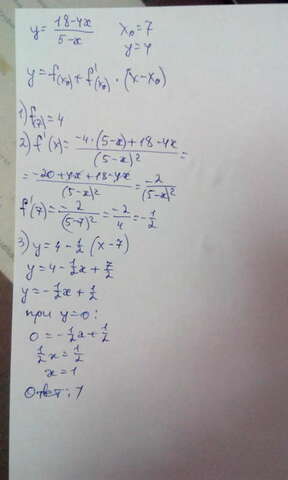 y = (18-4x)/(5-x)    x₀ = 7
y = 4
y = f(x₀) + f'(x₀) · (x-x₀)
1) f(7) = 4
2) f'(x) = (-4·(5-x)+18-4x)/(5-x)² =
= (-20+4x+18-4x)/(5-x)² = -2/(5-x)²
f'(7) = -2/(5-7)² = -2/4 = -1/2
3) y = 4 - 1/2 (x-7)
y = 4 - 1/2x + 7/2
y = -1/2x + 1/2
при y=0:
0 = -1/2x + 1/2
1/2 x = 1/2
x = 1
Ответ: 1